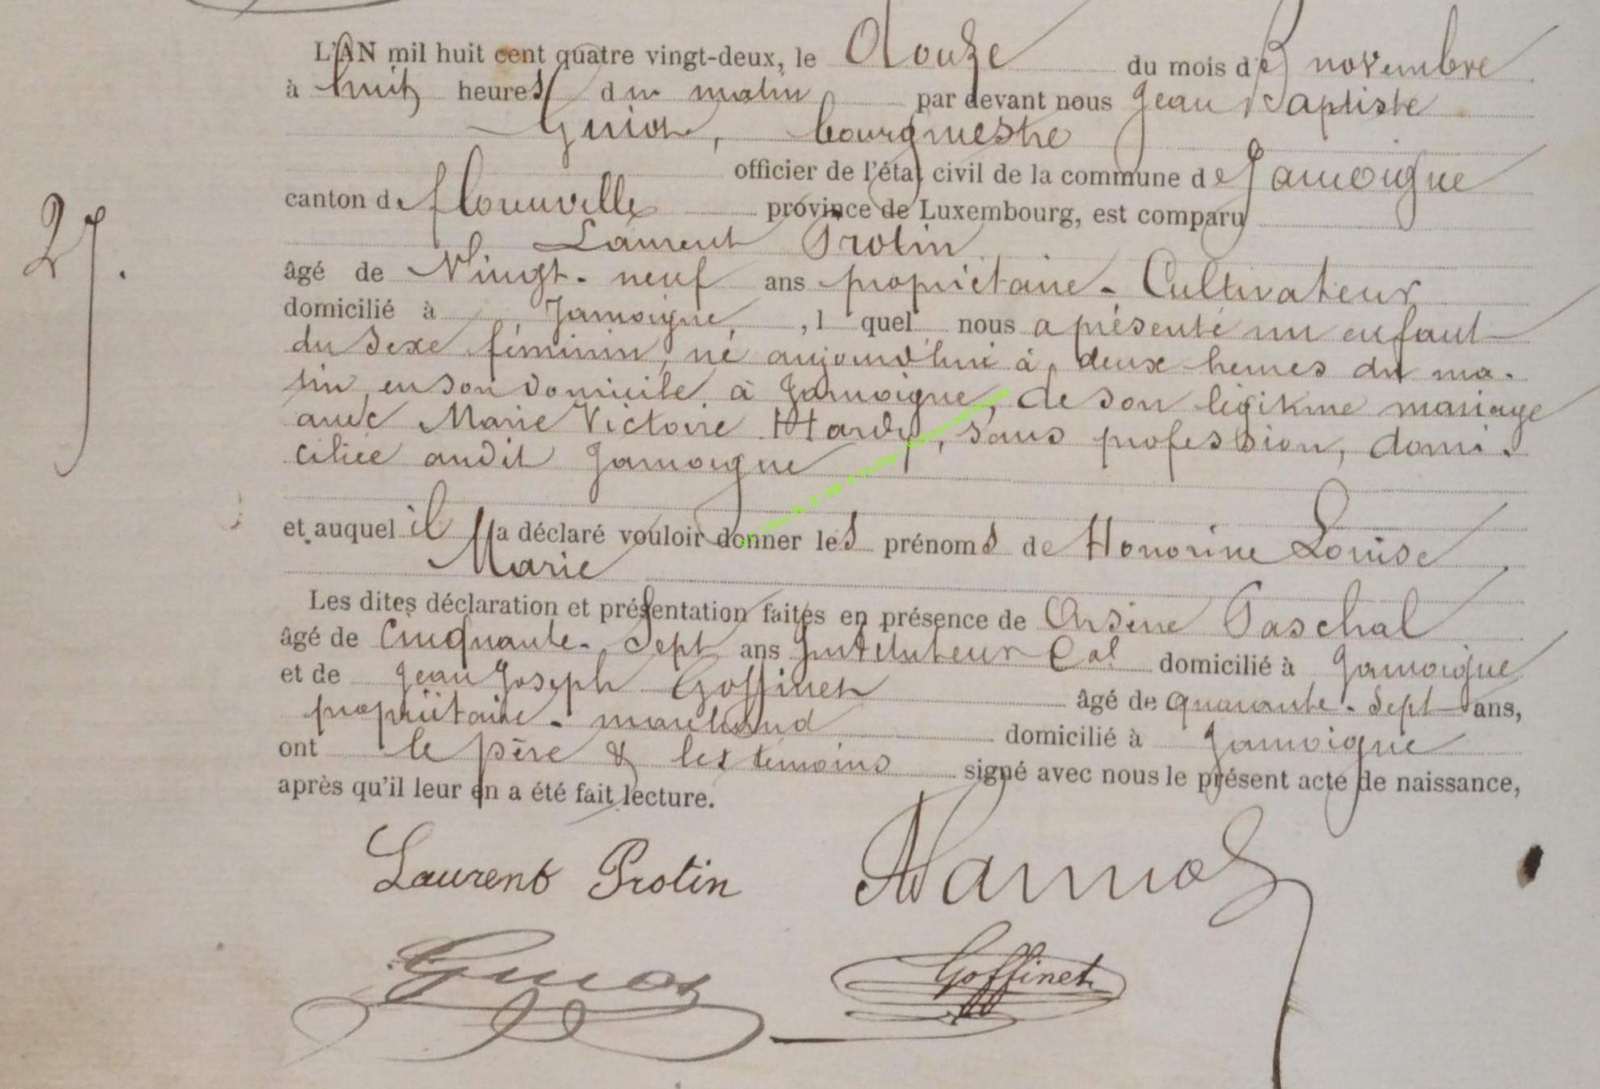 L'AN mil huit cent quatre vingt-deux, le douze du mois de novembre
à huit heures du matin par devant nous Jean Baptiste
Guiot, bourgmestre
officier de l'état civil de la commune de Jamoigne
canton de florenville province de Luxembourg, est comparu
27.
Laurent Protin
âgé de Vingt-neuf ans propriétaire-Cultivateur
domicilié à Jamoigne, , l quel nous a présenté un enfant
du sexe féminin, né aujourd'hui à deux heures du ma-
tin en son domicile à Jamoigne, de son légitime mariage
avec Marie Victoire Hardy, sans profession, domi-
ciliée audit Jamoigne
et auquel il a déclaré vouloir donner les prénoms de Honorine Louise
Marie
Les dites déclaration et présentation faites en présence de Arsène Paschal
âgé de Cinquante-Sept ans Instituteur Cal domicilié à Jamoigne
et de Jean Joseph Goffinet âgé de quarante-sept ans,
propriétaire-marchand domicilié à Jamoigne
ont le père & les témoins signé avec nous le présent acte de naissance,
après qu'il leur en a été fait lecture.
Laurent Protin
Guiot Goffinet